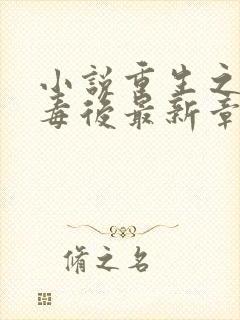 小説重生之
毒後最新章
脩之名